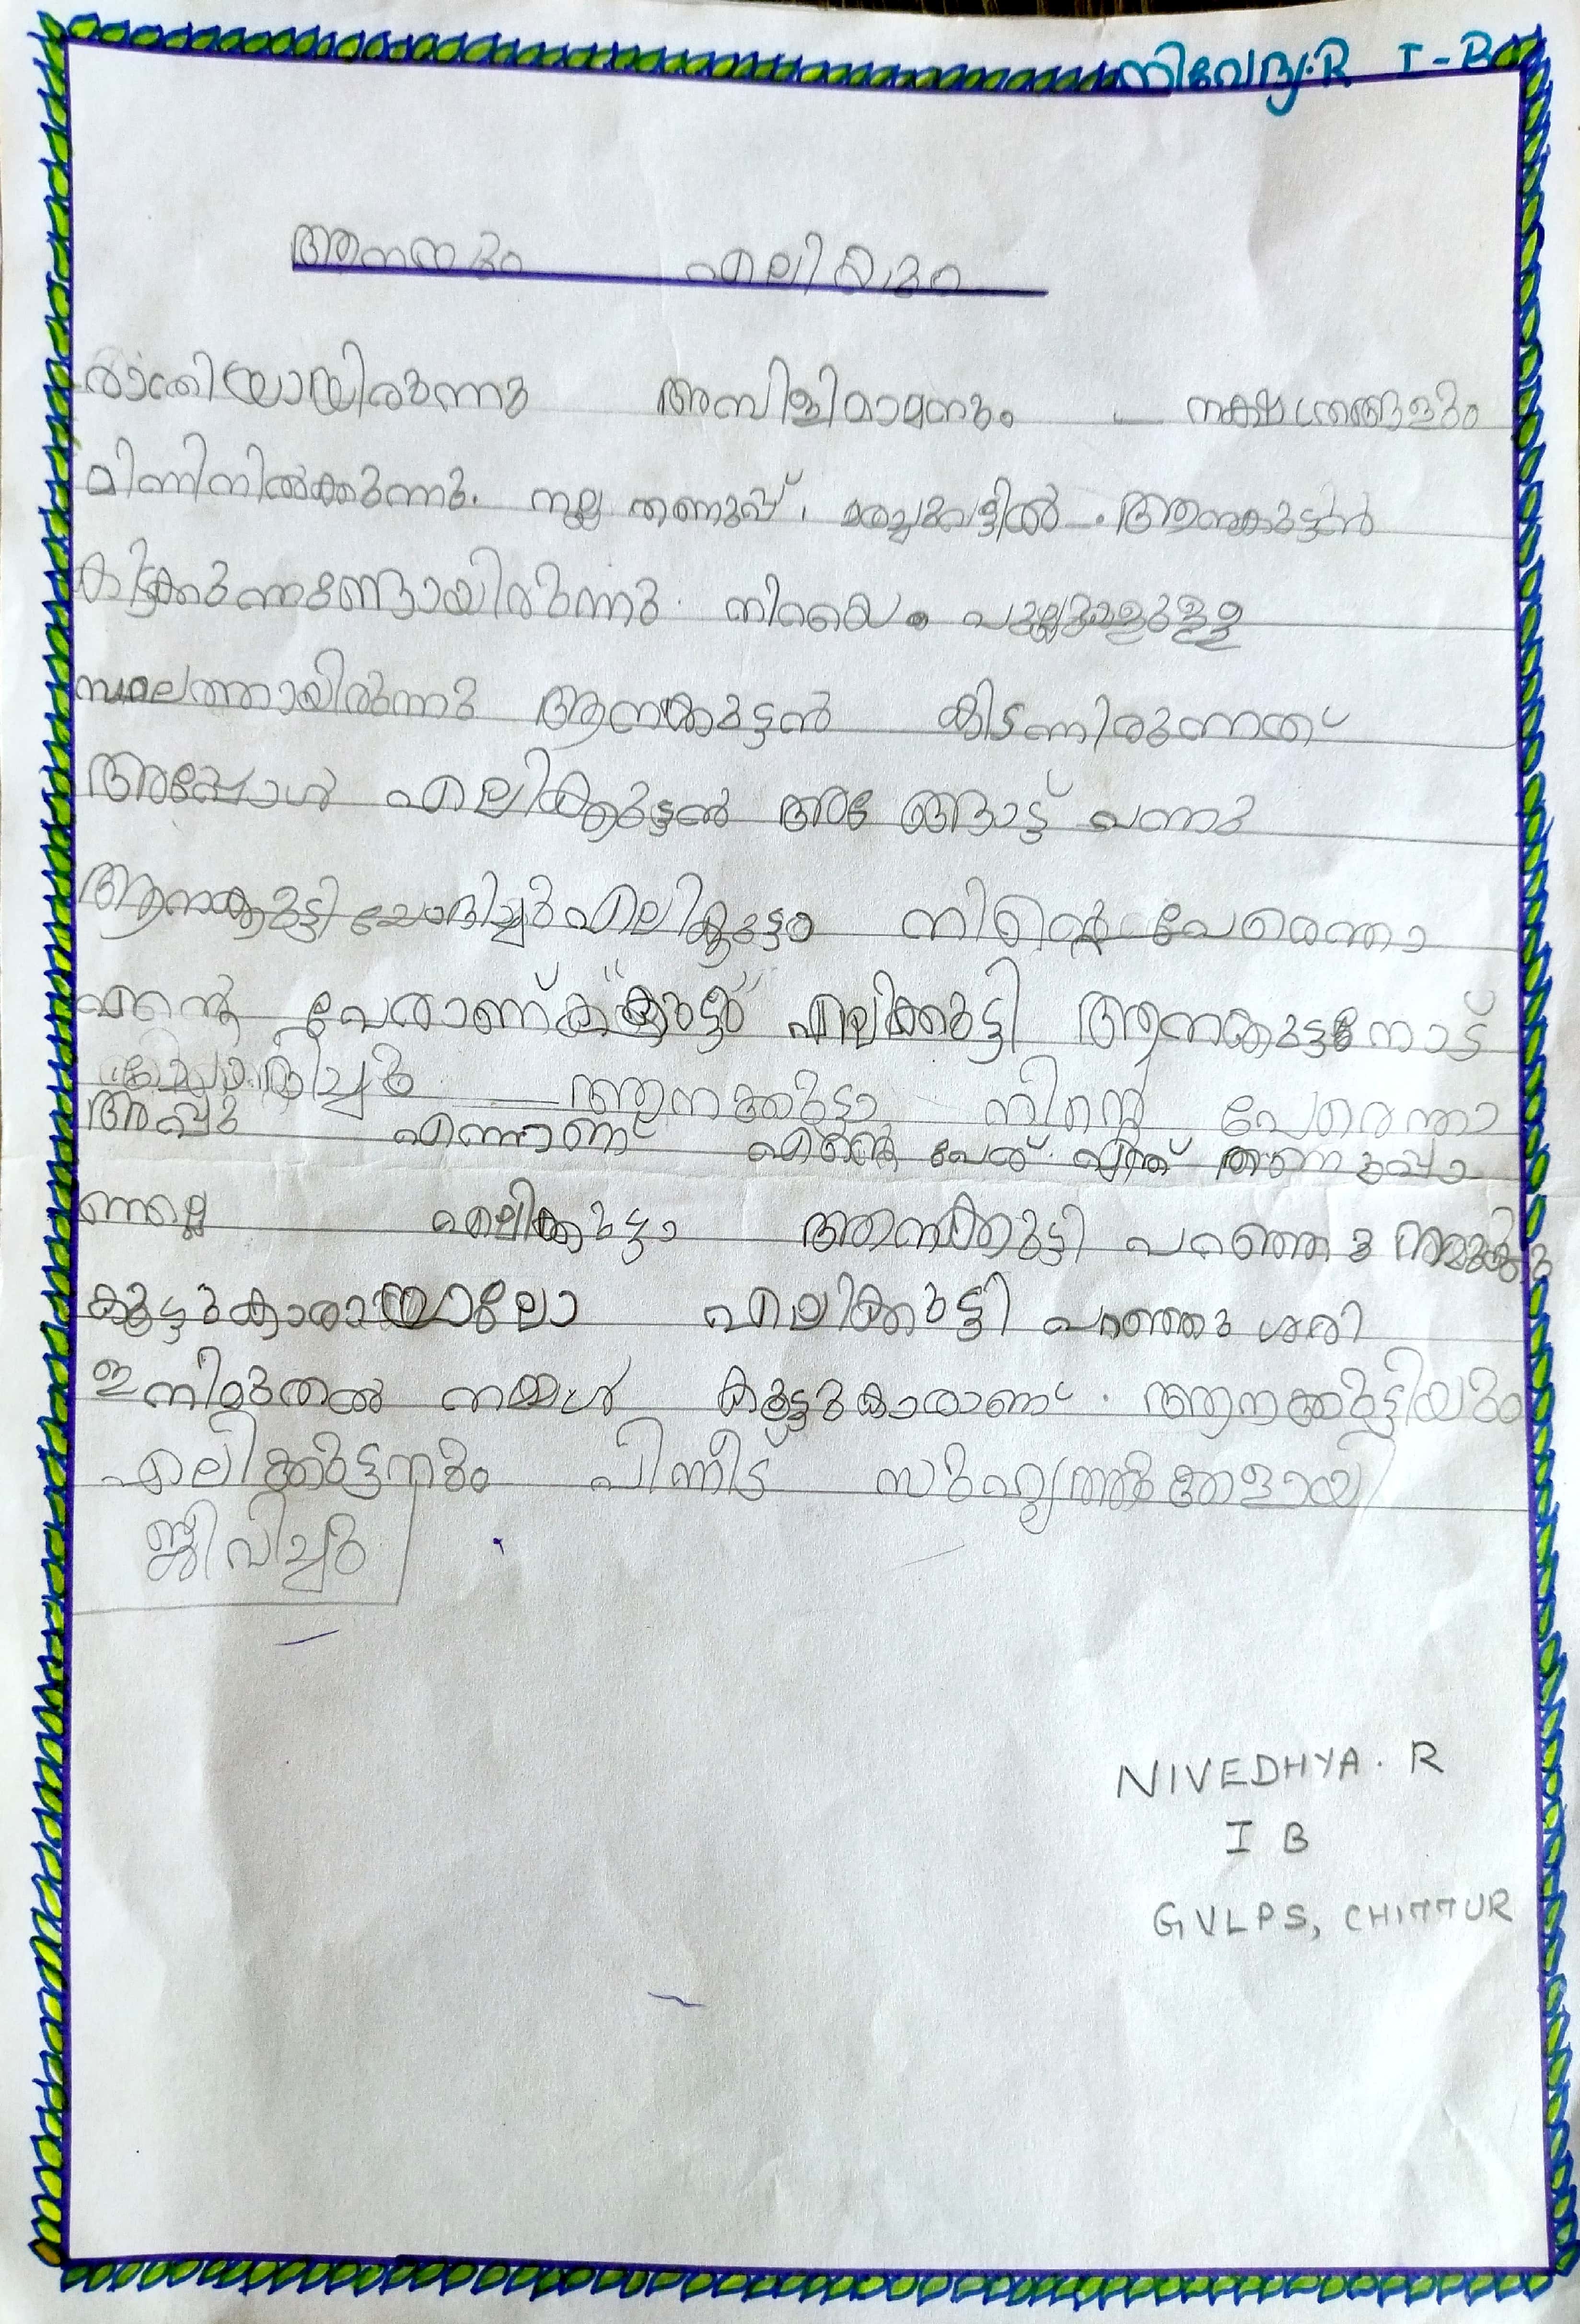 നിവേദ്യ.R I-B
ആനയും എലിയും
രാത്രിയായിരുന്നു അമ്പിളിമാമനും നക്ഷത്രങ്ങളും
മിന്നിനിൽക്കുന്നു. നല്ല തണുപ്പ്. മരച്ചുവട്ടിൽ . ആനക്കുട്ടൻ
കിടക്കുന്നുണ്ടോയിരുന്നു. നിറയെ പുല്ലുകളുള്ള
സ്ഥലത്തായിരുന്നു ആനക്കുട്ടൻ കിടന്നിരുന്നത്
അപ്പോൾ എലിക്കുട്ടൻ അങ്ങോട്ട് വന്നു
ആനക്കുട്ടി ചോദിച്ചു എലിക്കുട്ടാ നിന്റെ പേരെന്താ
എന്റെ പേരാണ് "കുട്ടു" എലിക്കുട്ടി ആനക്കുട്ടനോട്
ചോദിച്ചു ആനക്കുട്ടാ നിന്റെ പേരെന്താ
അപ്പു എന്നാണ് എന്റെ പേര്. എന്ത് തണുപ്പാ
ണല്ലെ എലിക്കുട്ടാ ആനക്കുട്ടി പറഞ്ഞു നമുക്കു
കൂട്ടുകാരായാലോ എലിക്കുട്ടി പറഞ്ഞു ശരി
ഇനിമുതൽ നമ്മൾ കൂട്ടുകാരാണ്. ആനക്കുട്ടിയും
എലിക്കുട്ടനും പിന്നീട് സുഹൃത്തുക്കളായി
ജീവിച്ചു
NIVEDHYA. R
I B
GVLPS, CHITTUR